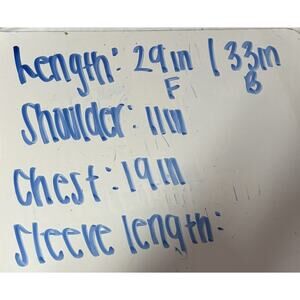 Length: 29in | 33in
F B
Shoulder: 11in
Chest: 19in
Sleeve length: